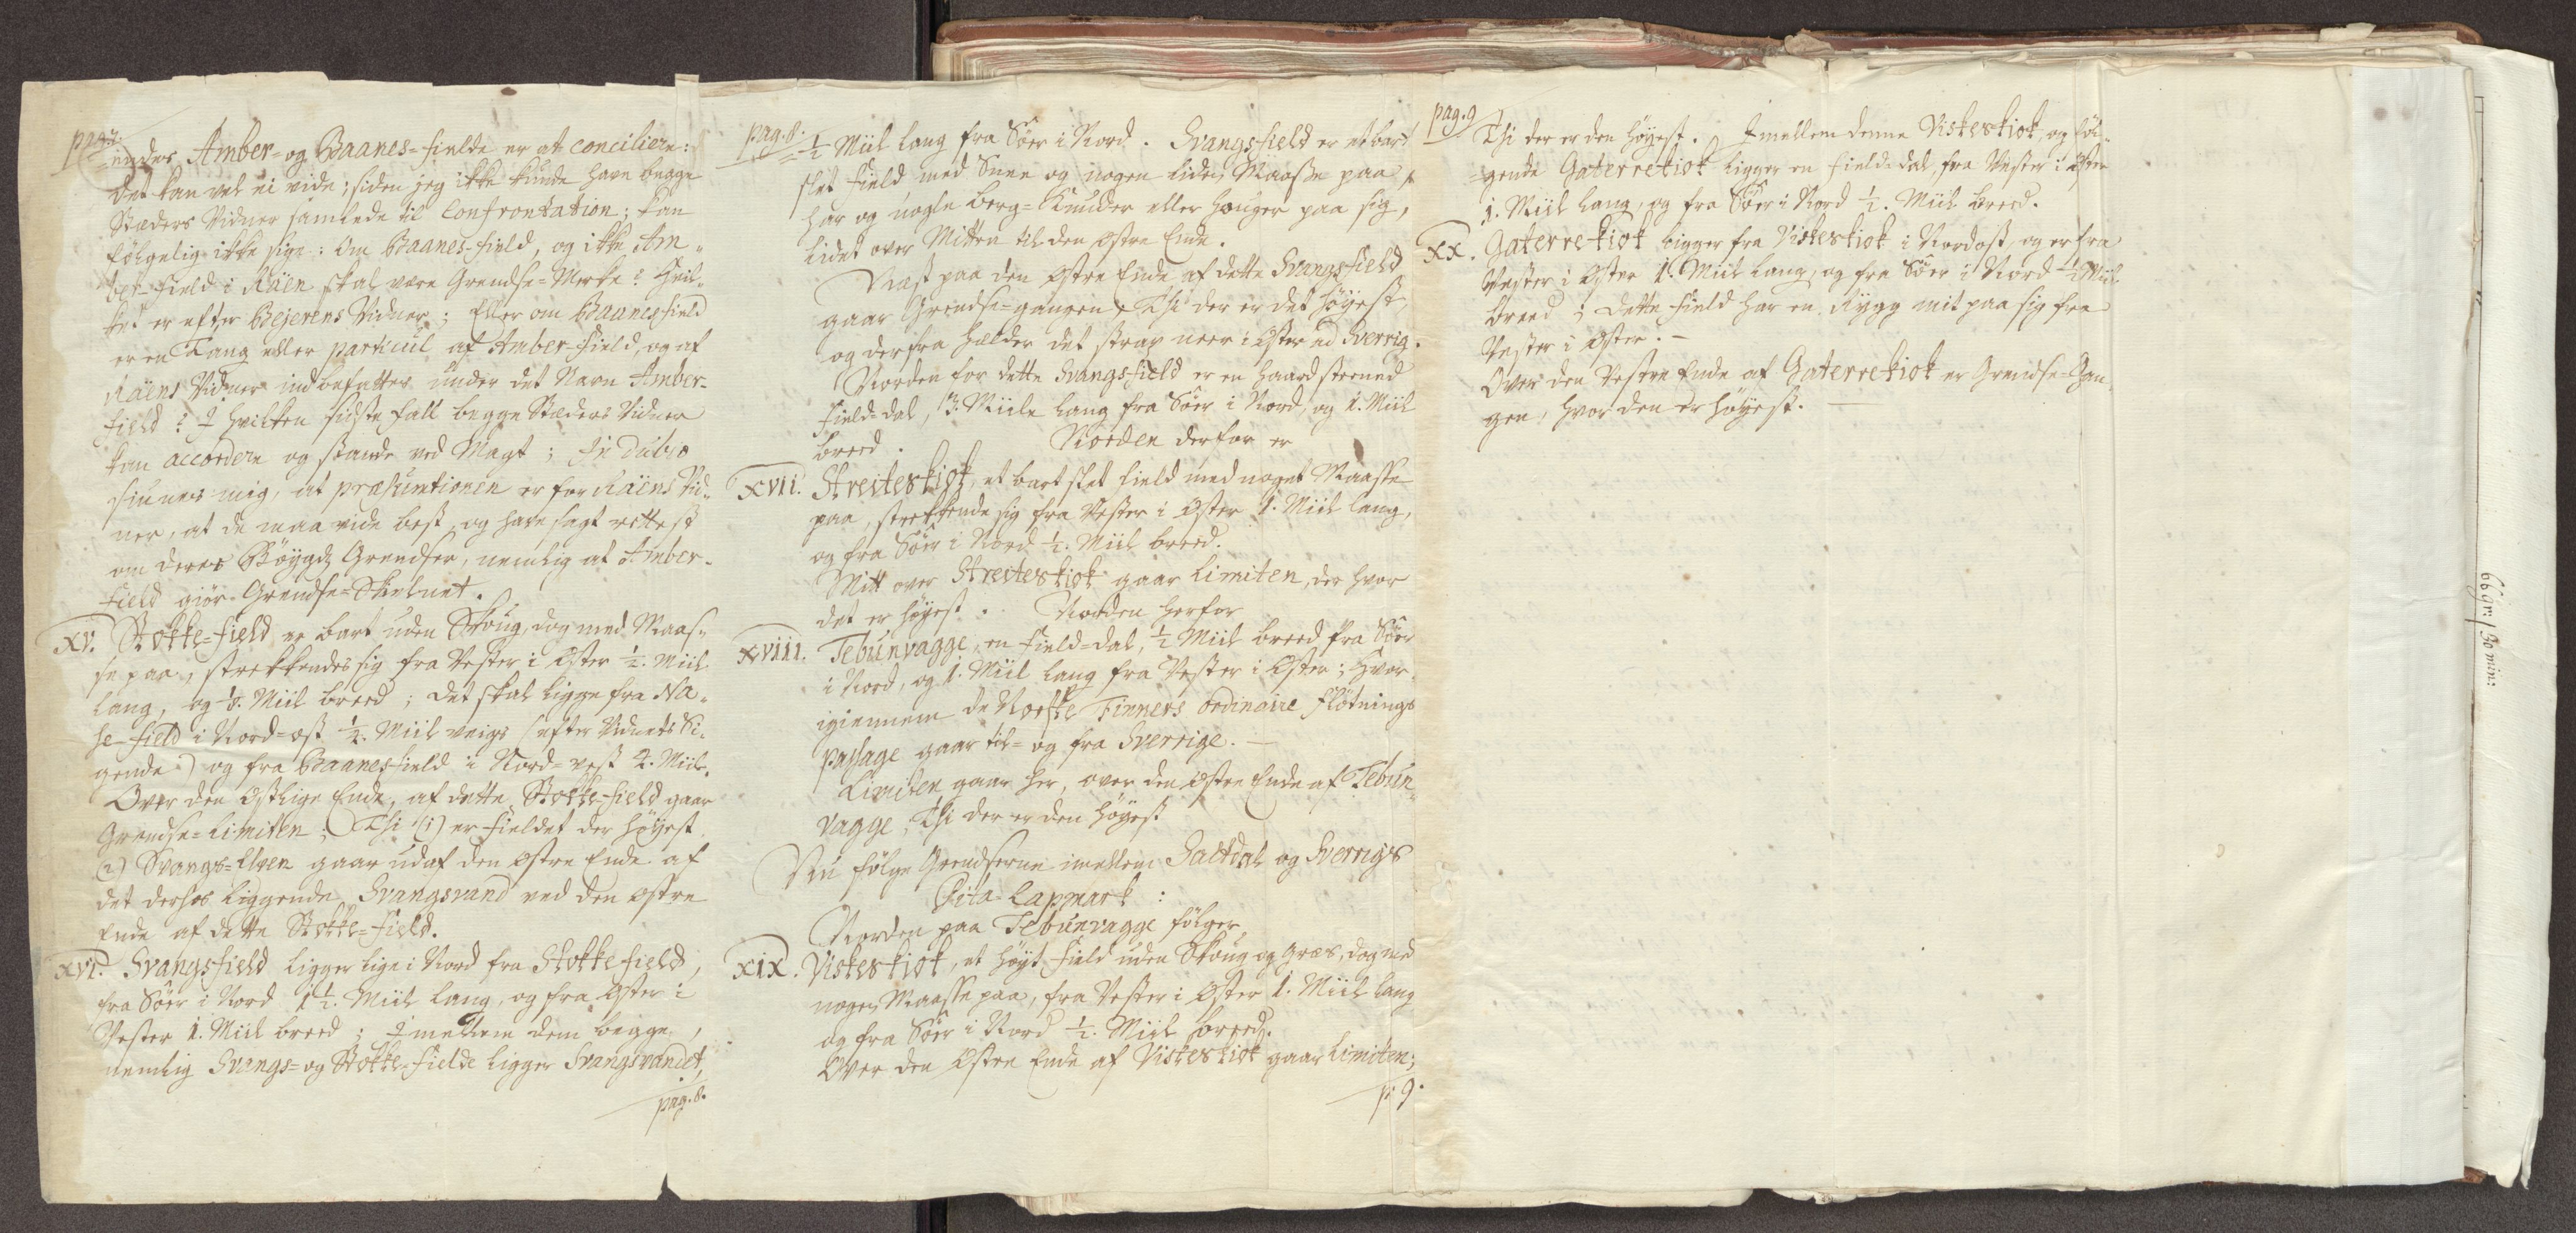 pag. 7.
enders Amber- og Baanes-Fielde er at conciliere:
det kan vel ei vide; siden jeg ikke kunde have begge
Stæders Vidner samlede til Confrontation; kan
følgelig ikke sige: Om Baanes-Field, og ikke Am-
ber-Field i Räen skal være Grendse-Merke? Hvil-
ket er efter Bejerens Vidner; Eller om Baanesfield
er en Tang eller particul af Amber-Field, og af
Räens Vidner indbefattes under det Navn Amber-
Field? I hvilken sidste fall begge Stæders Vidner
kan accordere og stande ved Magt; In dubio
siunes mig, at præsumtionen er for Räens Vid-
ner, at de maa vide best, og have sagt rettest
om deres Böygds Grendser, nemlig at Amber-
Field giör Grendse-Skielnet.
XV. Stokke-Field er bart uden Skoug, dog med Maas-
se paa, strekkendes sig fra Vester i Öster ½. Miil
lang, og ⅛. Miil breed; det skal ligge fra Na-
se-Field i Nord-ost ¼. Miil veigs (efter Vidnets Si-
gende) og fra Baanesfield i Nord-vest 4. Miil.
Over den Östlige Ende, af dette Stokke-Field gaar
Grendse-Limiten; Thi (1) er Fieldet der höyest
(2) Svangs-Elven gaar udaf den östre Ende af
det derhos liggende Svangsvand ved den östre
Ende af dette Stokke-Field.
XVI. Svangsfield ligger lige i Nord fra Stokkefield,
fra Söer i Nord 1½. Miil lang, og fra Öster i
Vester 1. Miil breed; Imellem dem begge,
nemlig Svangs- og Stokke-Fielde ligger Svangsvandet,
pag. 8.
pag. 8.
½ Miil lang fra Söer i Nord. Svangsfield er et bart
slet Field med Snee og nogen liden Maasse paa,
har og nogle berg-Knuder eller Houger paa sig,
lidet over Mitten til den Östre Ende.
Næst paa den Östre Ende af dette Svangsfield
gaar Grendse-gangen, Thi der er det höyest,
og derfra helder det strax neer i Öster ad Sverrig.
Norden for dette Svangsfield er en haard steened
Field-dal, 3. Miile lang fra Söer i Nord, og 1. Miil
breed. Norden derfor er
XVII. Streiteskiok, et bart slet Field med noget Maasse
paa, strekkende sig fra Vester i Öster 1. Miil lang,
og fra Söer i Nord ½. Miil breed.
Mitt over Streiteskiok gaar Limiten, der hvor
det er höyest. Norden herfor
XVIII. Tebunvagge, en Field-dal, ½ Miil breed fra Söer
i Nord, og 1. Miil lang fra Vester i Öster; Hvor
igiennem de Norske Finners ordinaire Flötnings
passage gaar til- og fra Sverrige.
Limiten gaar her, over den Östre Ende af Tebun-
vagge, Thi der er den höyest
Nu fölge Grendserne imellem Saltdal og Sverrigs
Pita-Lapmark:
Norden paa Tebunvagge fölger
XIX. Viskeskiok, et höyt Field uden Skoug og græs, dog med
nogen Maasse paa, fra Vester i Öster 1. Miil lang
og fra Söer i Nord ½. Miil breed.
Over den Östre Ende af Viskeskiok gaar Limiten;
p. 9.
pag. 9
Thi der er den höyest. Imellem denne Viskeskiok, og föl-
gende Gaterrekiok ligger en Field-dal, fra Vester i Öster
1. Miil lang, og fra Söer i Nord ½. Miil breed.
XX. Gaterrekiok ligger fra Viskeskiok i Nordost, og er fra
Vester i Öster 1. Miil lang, og fra Söer i Nord ½ Miil
breed; dette Field har en Rygg mit paa sig fra
Vester i Öster.
Over den Vestre Ende af Gaterrekiok er Grendse-Gan-
gen, hvor den er höyest.
66 gr: 30 min: